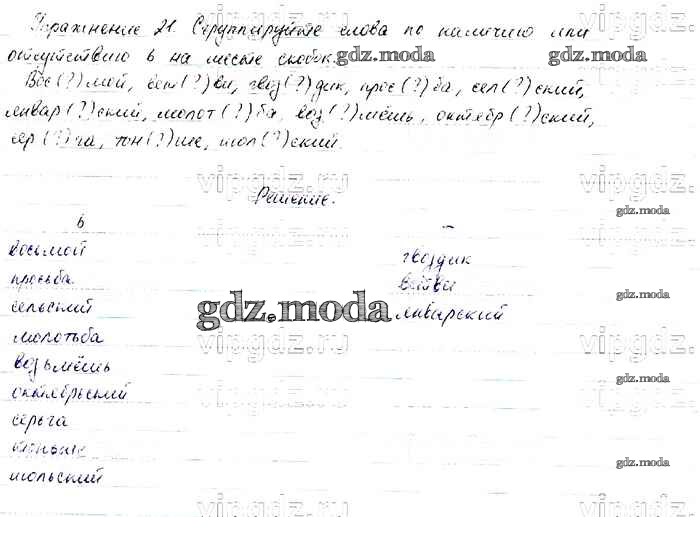 Упражнение 21. Сгруппируйте слова по наличию или
отсутствию ь на месте скобок.
Вос(?)мой, вет(?)ви, гвоз(?)дик, прос(?)ба, сел(?)ский,
январ(?)ский, молот(?)ба, воз(?)мёшь, октябр(?)ский,
сер(?)га, тон(?)ше, июл(?)ский.
Решение.
ь –
восьмой гвоздик
просьба ветви
сельский январский
молотьба
возьмёшь
октябрьский
серьга
тоньше
июльский
vipgdz.ru
gdz.moda